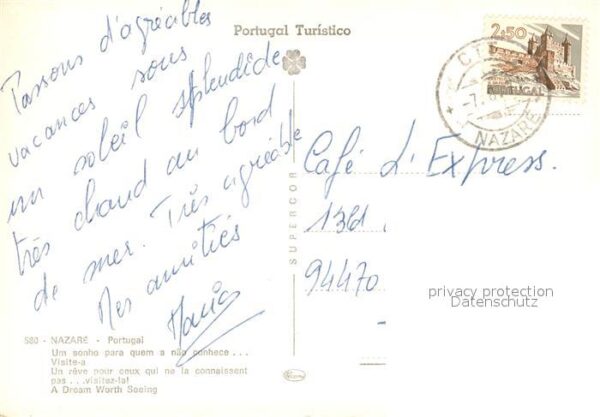 Portugal Turístico
Passons d'agréables
vacances sous
un soleil splendide
très chaud au bord
de mer. Très agréable
Mes amitiés
Maria
2$50
PORTUGAL
NAZARÉ
SUPERCOR
Café d'Express.
1361.
94470
privacy protection
Datenschutz
580 - NAZARÉ - Portugal
Um sonho para quem a não conhece...
Visite-a
Un rêve pour ceux qui ne la connaissent
pas...visitez-la!
A Dream Worth Seeing